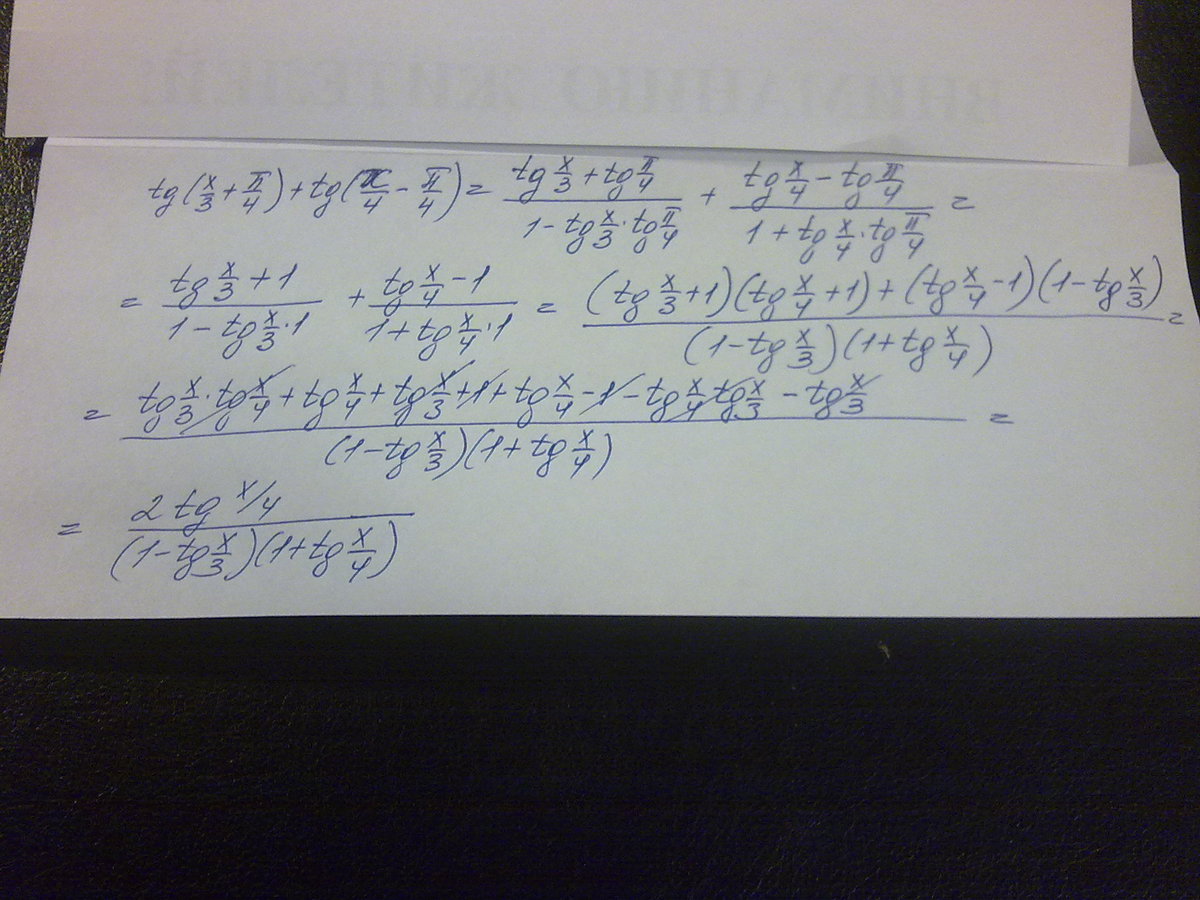 ВНИМАНИЮ ЖИТЕЛЕЙ!
tg(x/3 + π/4) + tg(x/4 - π/4) = (tg x/3 + tg π/4)/(1 - tg x/3 · tg π/4) + (tg x/4 - tg π/4)/(1 + tg x/4 · tg π/4) =
= (tg x/3 + 1)/(1 - tg x/3 · 1) + (tg x/4 - 1)/(1 + tg x/4 · 1) = ((tg x/3 + 1)(tg x/4 + 1) + (tg x/4 - 1)(1 - tg x/3))/((1 - tg x/3)(1 + tg x/4)) =
= (tg x/3 · tg x/4 + tg x/4 + tg x/3 + 1 + tg x/4 - 1 - tg x/4 tg x/3 - tg x/3)/((1 - tg x/3)(1 + tg x/4)) =
= (2 tg x/4)/((1 - tg x/3)(1 + tg x/4))